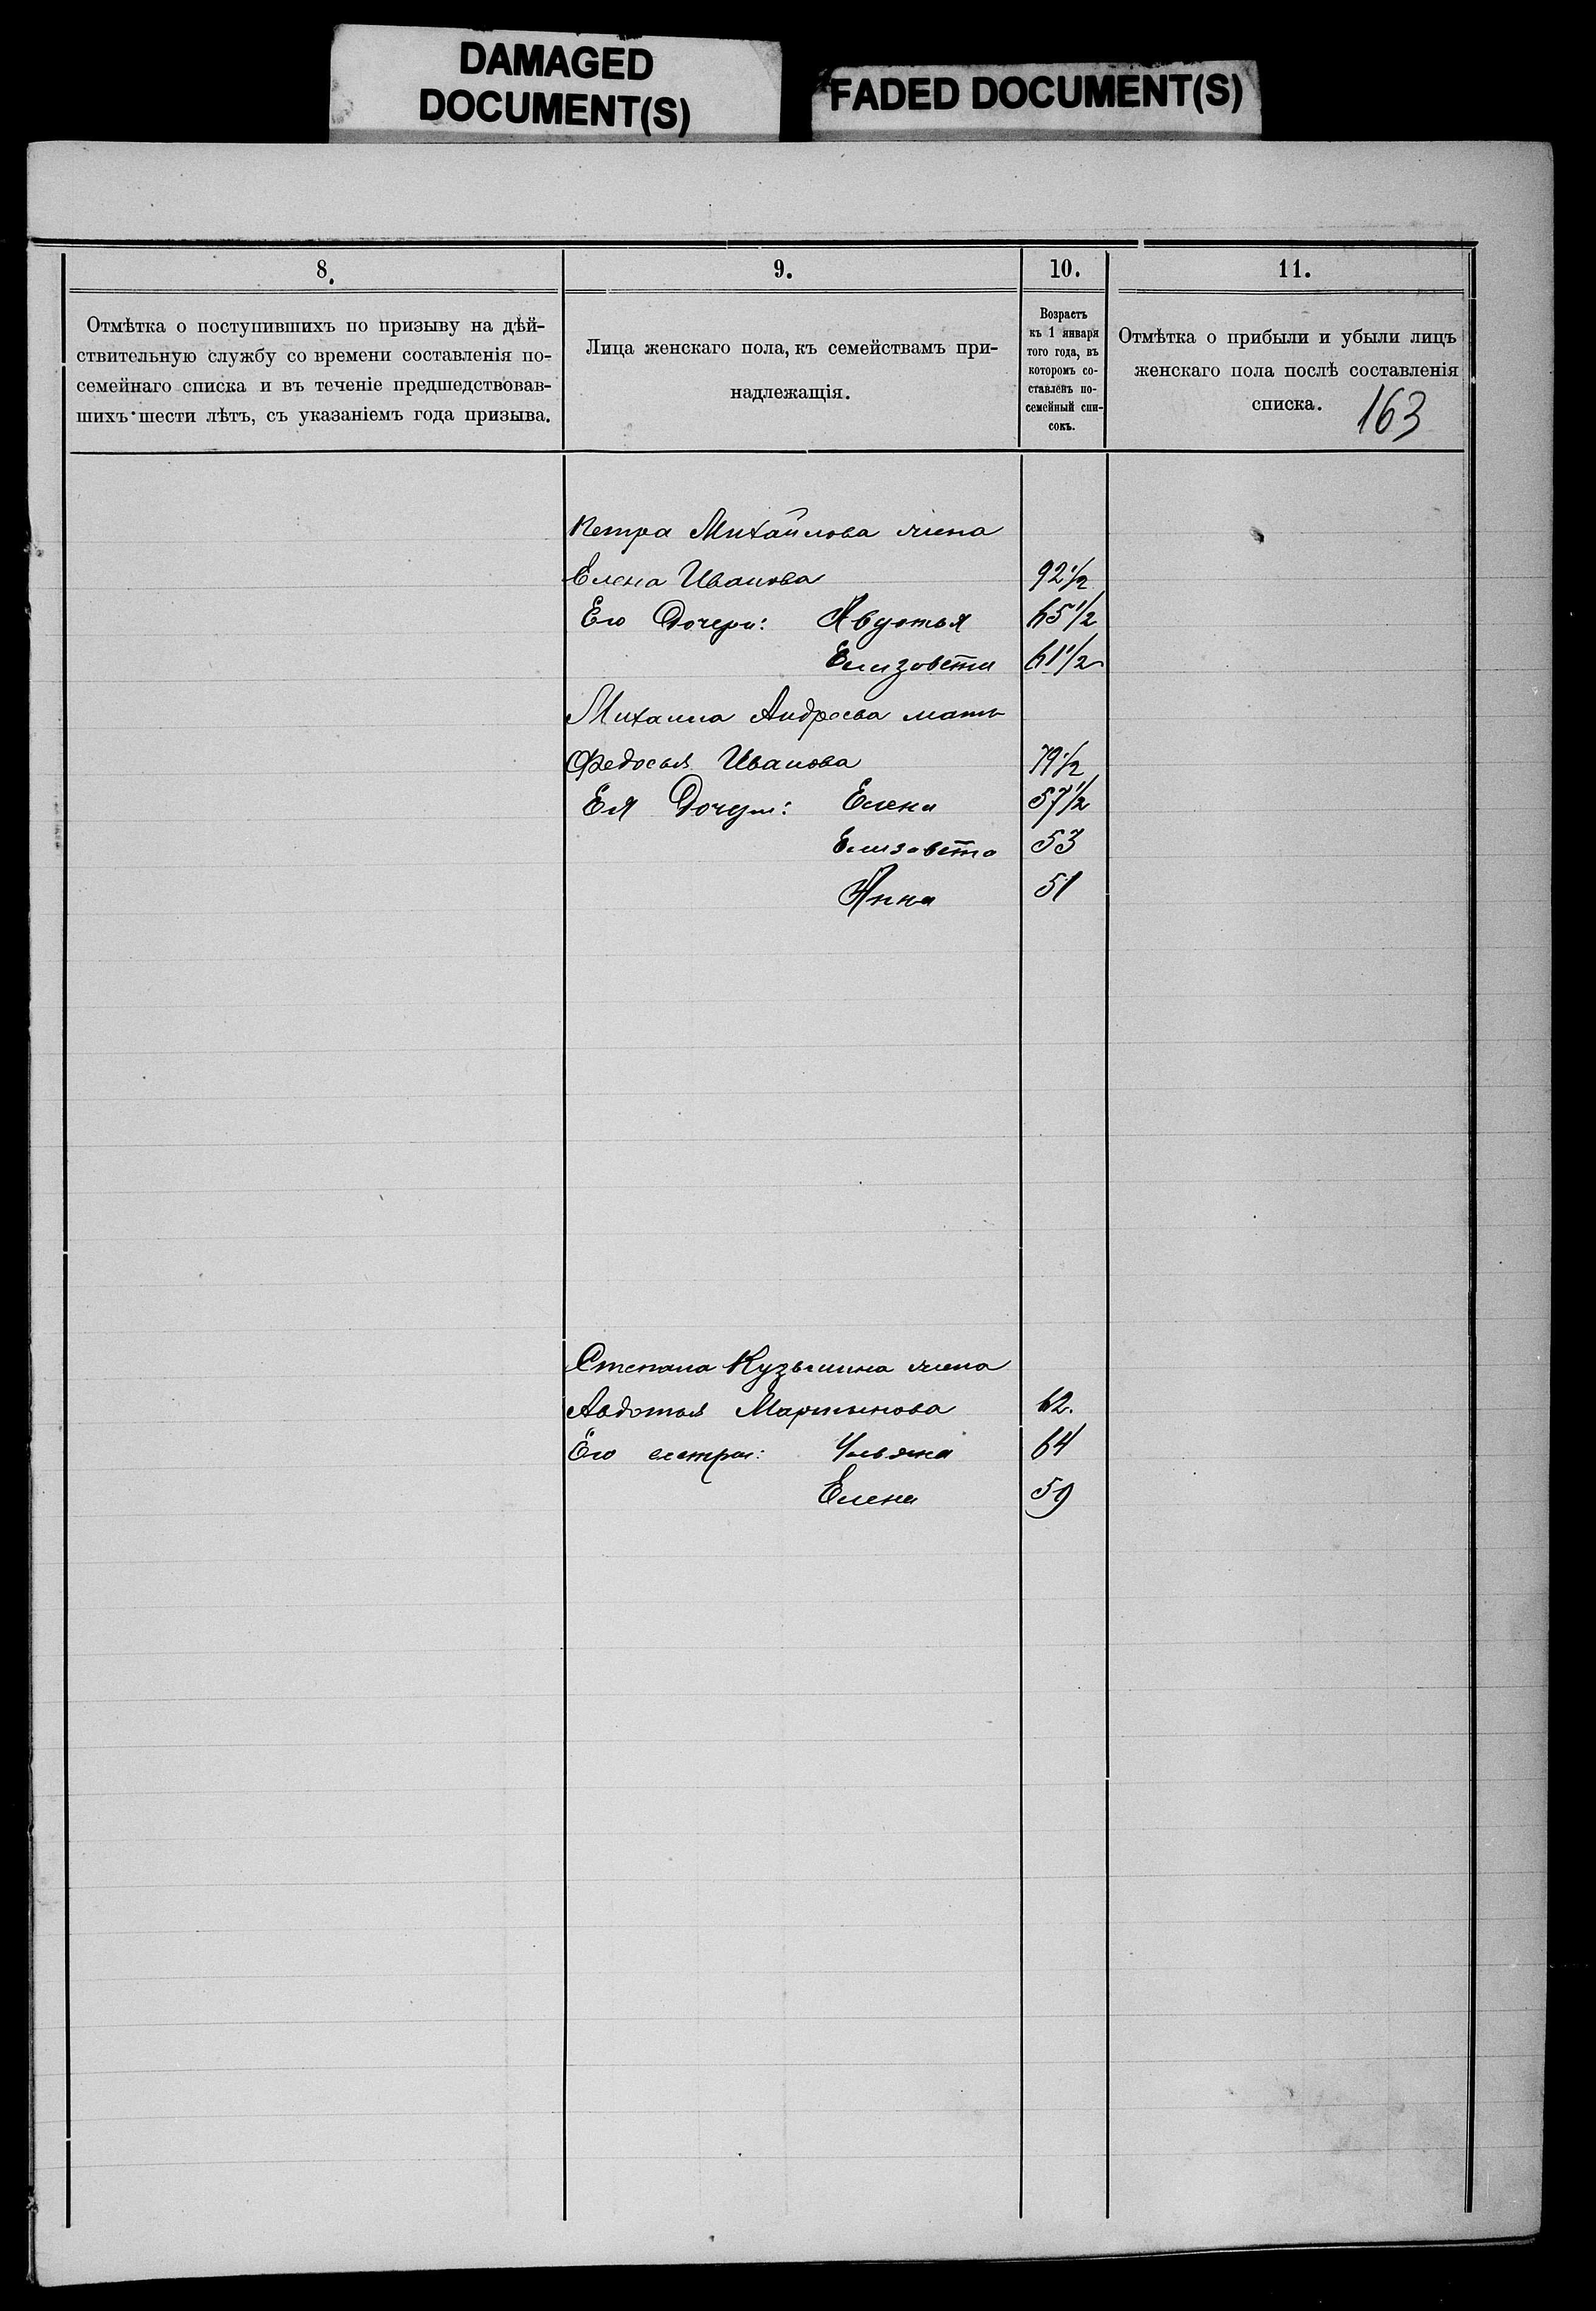 DAMAGED
DOCUMENT(S)
FADED DOCUMENT(S)
8.
Отмѣтка о поступившихъ по призыву на дѣй-
ствительную службу со времени составленія по-
семейнаго списка и въ теченіе предшедствовав-
шихъ шести лѣтъ, съ указаніемъ года призыва.
9.
Лица женскаго пола, къ семействамъ при-
надлежащія.
10.
Возрастъ
къ 1 января
того года, въ
которомъ со-
ставленъ по-
семейный спи-
сокъ.
11.
Отмѣтка о прибыли и убыли лицъ
женскаго пола послѣ составленія
списка.
163
Петра Михайлова жена
Елена Иванова 92½
Его Дочери: Авдотья 65½
Елизовета 61½
Михаила Андреева мать
Федосья Иванова 79½
Ея Дочери: Елена 57½
Елизавета 53
Анна 51
Степана Кузьмина жена
Авдотья Мартынова 62.
Его сестры: Ульяна 64
Елена 59